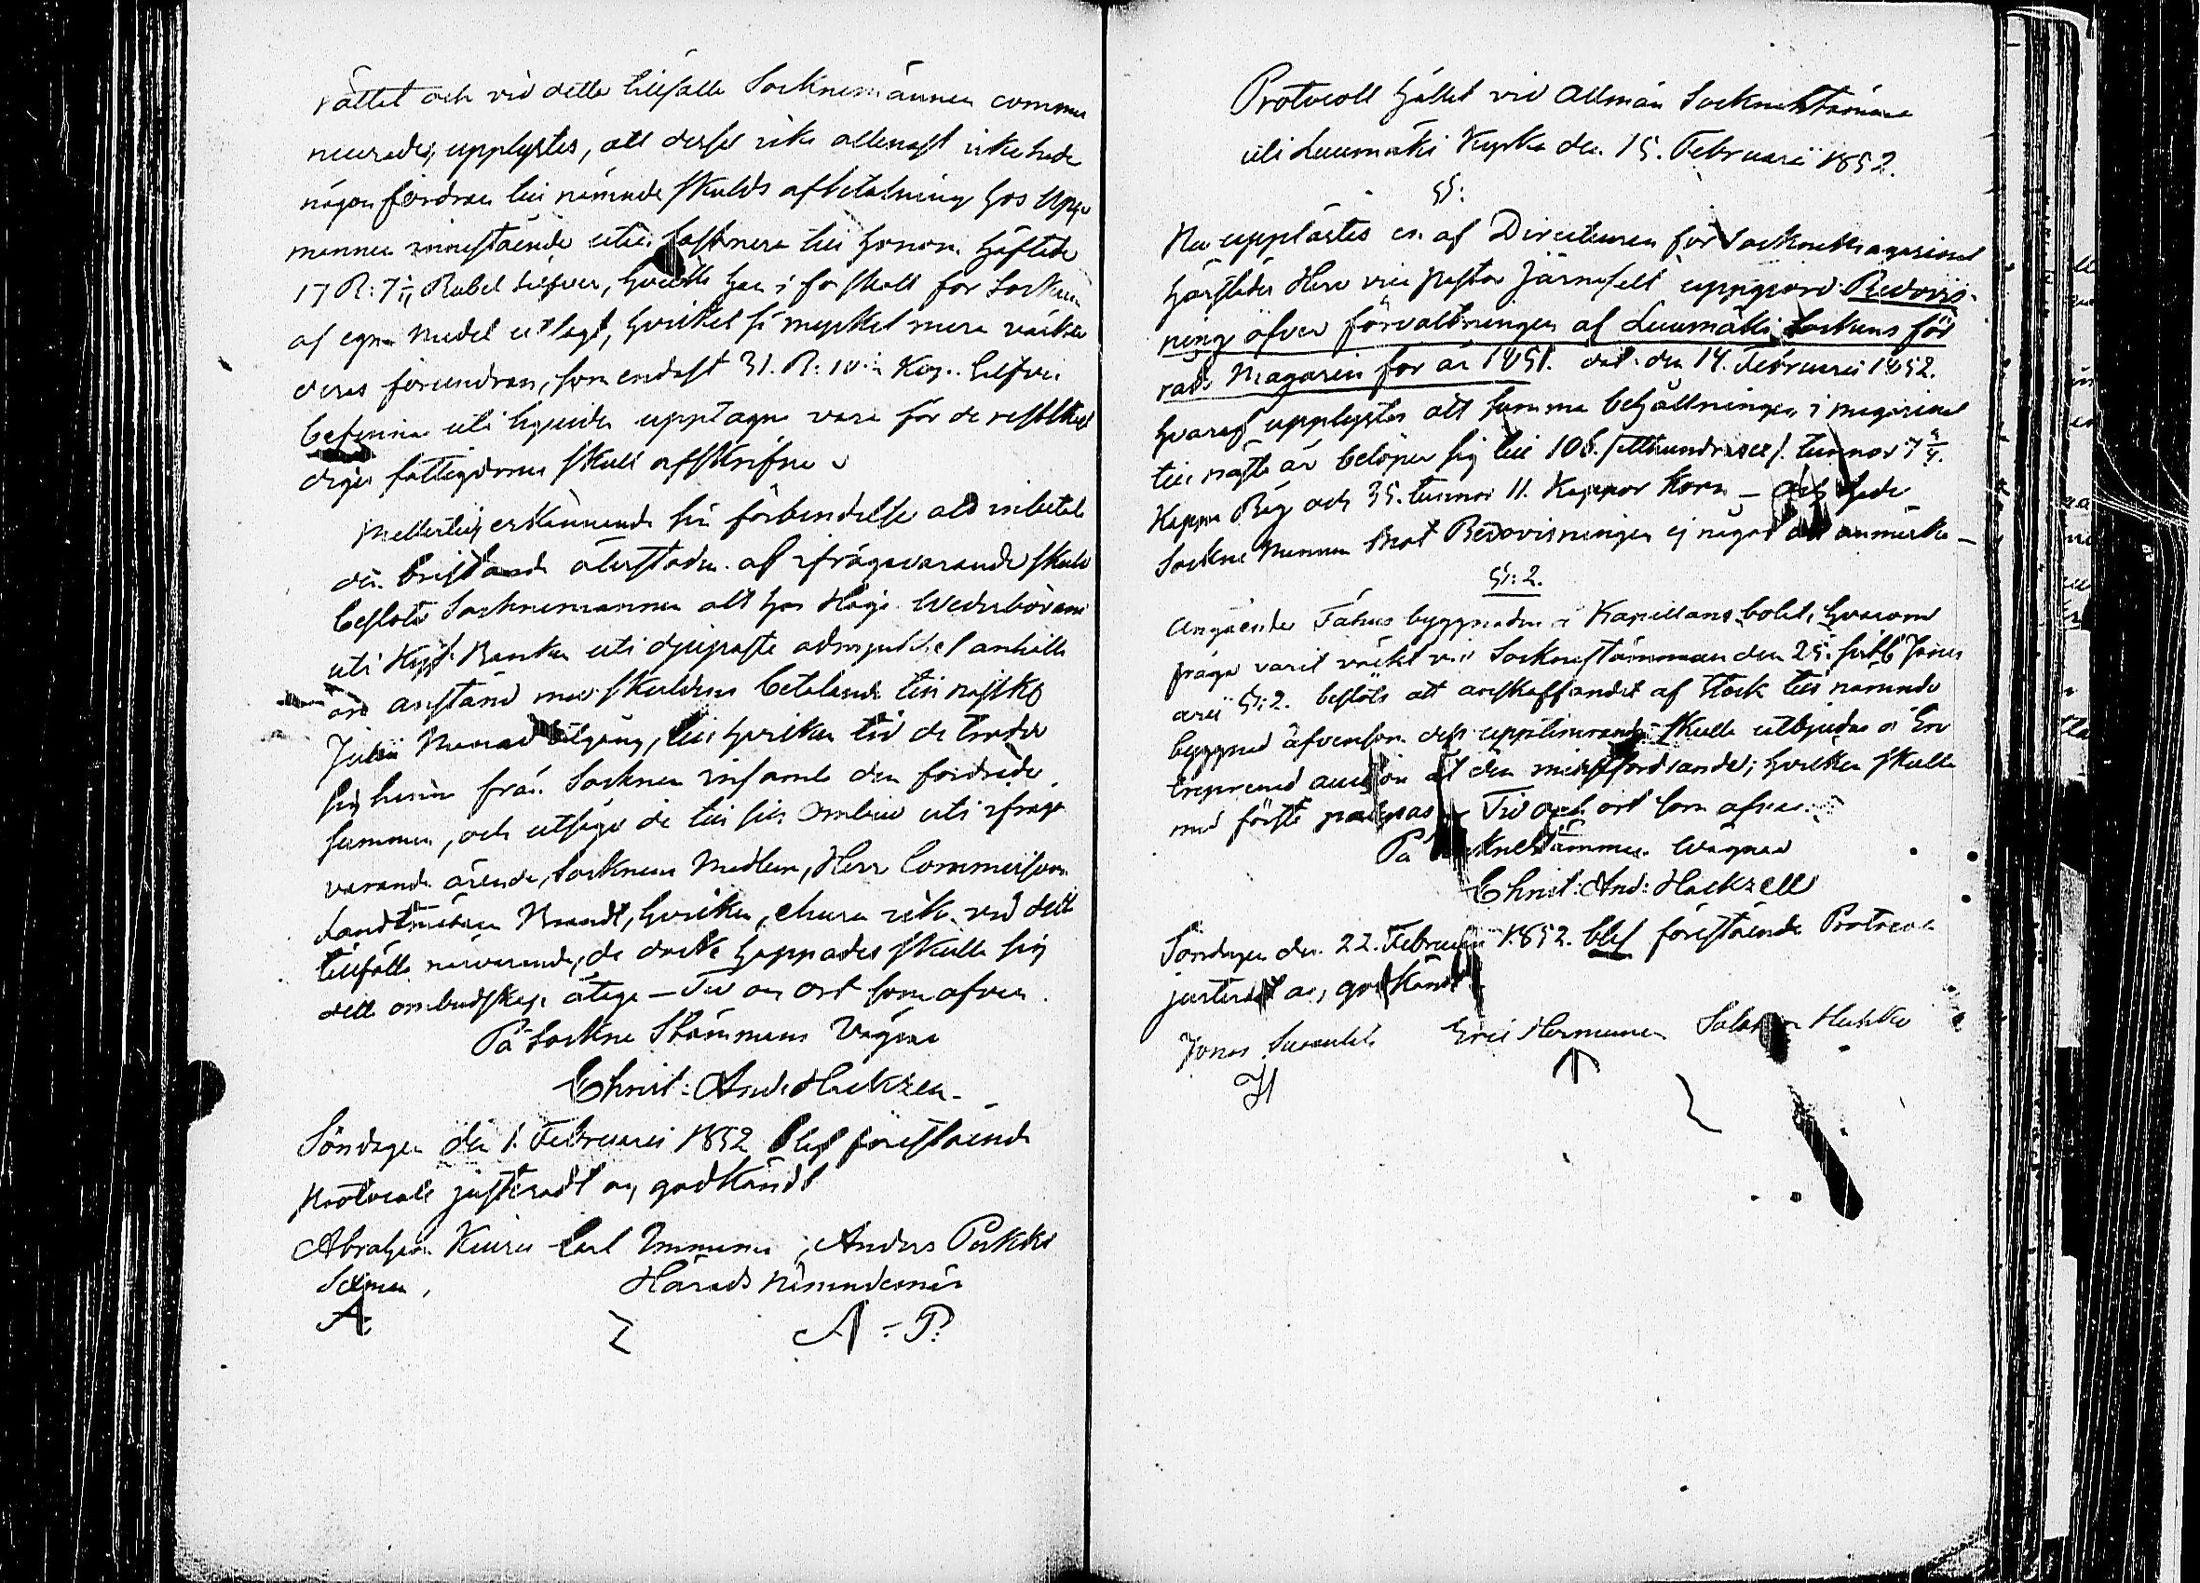 rättet och vid detta tillfälle Socknemännen commu
nicerades, upplystes, att desse icke allenast icke hade
någon fordran till nämnde skulds afbetalning hos Upp
mannen innestående utan häftade
17 R: 7 Rubel Silfver, hvilka han i förskott för Socknen
af egna medel utlagt, hvilket så mycket mera väckte
deras förundran, som endast 31. R: 10 Kop. Silfver
befinnas uti liquiden upptagne vara för de
fattigdoms skull afskrifne
erkännande sin förbindelse att inbetala
den bristande återstoden af ifrågavarande skuld
beslöto Socknemännen att hos Höga Wederbörande
uti Banken uti djupaste ödmjukhet anhålla
om anstånd med skuldens betalande till nästk
Julii Månad utgång, till hvilken tid de trodde
sig hinna från Socknen insamla den fordrade
summan, och utsågo de till sitt Ombud uti ifråga
varande ärende, Socknens Medlem, Herr Commissions
Landtmätaren Brandt, hvilken, ehuru icke vid detta
tillfälle närvarande, de dock hoppades skulle sig
detta ombudskap åtaga – Tid och Ort som ofvan.
På Sockne Stämmans Vägnar
Christ: And: Hackzell
Söndagen den 1. Februarii 1852 blef förestående
Protocoll justeradt och godkändt
Abraham Carl Anders Pukki
Härads Nämndeman
A
A : P:
Protocoll hållet vid Allmän Sockneståmma
uti Luumäki Kyrka den 15. Februarii 1852.
§:
Nu upplästes en af Directeuren för Sockne Magasinet
härstädes Herr vice pastor Järnefelt uppgjord Redovis-
ning öfver förvaltningen af Luumäki Sockens för
råds Magasin för år 1851. dat. den 14. Februarii 1852.
hvaraf upplystes att summa behållningen i magasinet
till nästa år belöper sig till 106. tunnor 7
Kappa Råg och 35. tunnor 11. Kappor Korn – och hade
Sockne Männen mot Redovisningen ej något att anmärka –
§: 2.
Angående Fähus byggnaden i Kapellans bolet, hvarom
fråga varit väckt vid Socknestämman den 25. sistl. Janu
arii §: 2. beslöts att anskaffandet af Stock till nämnde
byggnad äfvensom dess upptimrande skulle utbjudas å En
treprenad auction åt den minstfordrande; hvilken skulle
med första – Tid och ort som ofvan
På Socknestämmans Wägnar
Christ: And: Hackzell
Söndagen den 22. Februarii 1852. blef förestående Protocoll
justeradt och godkändt
Jonas Eric Hermunen Salomon Huhko